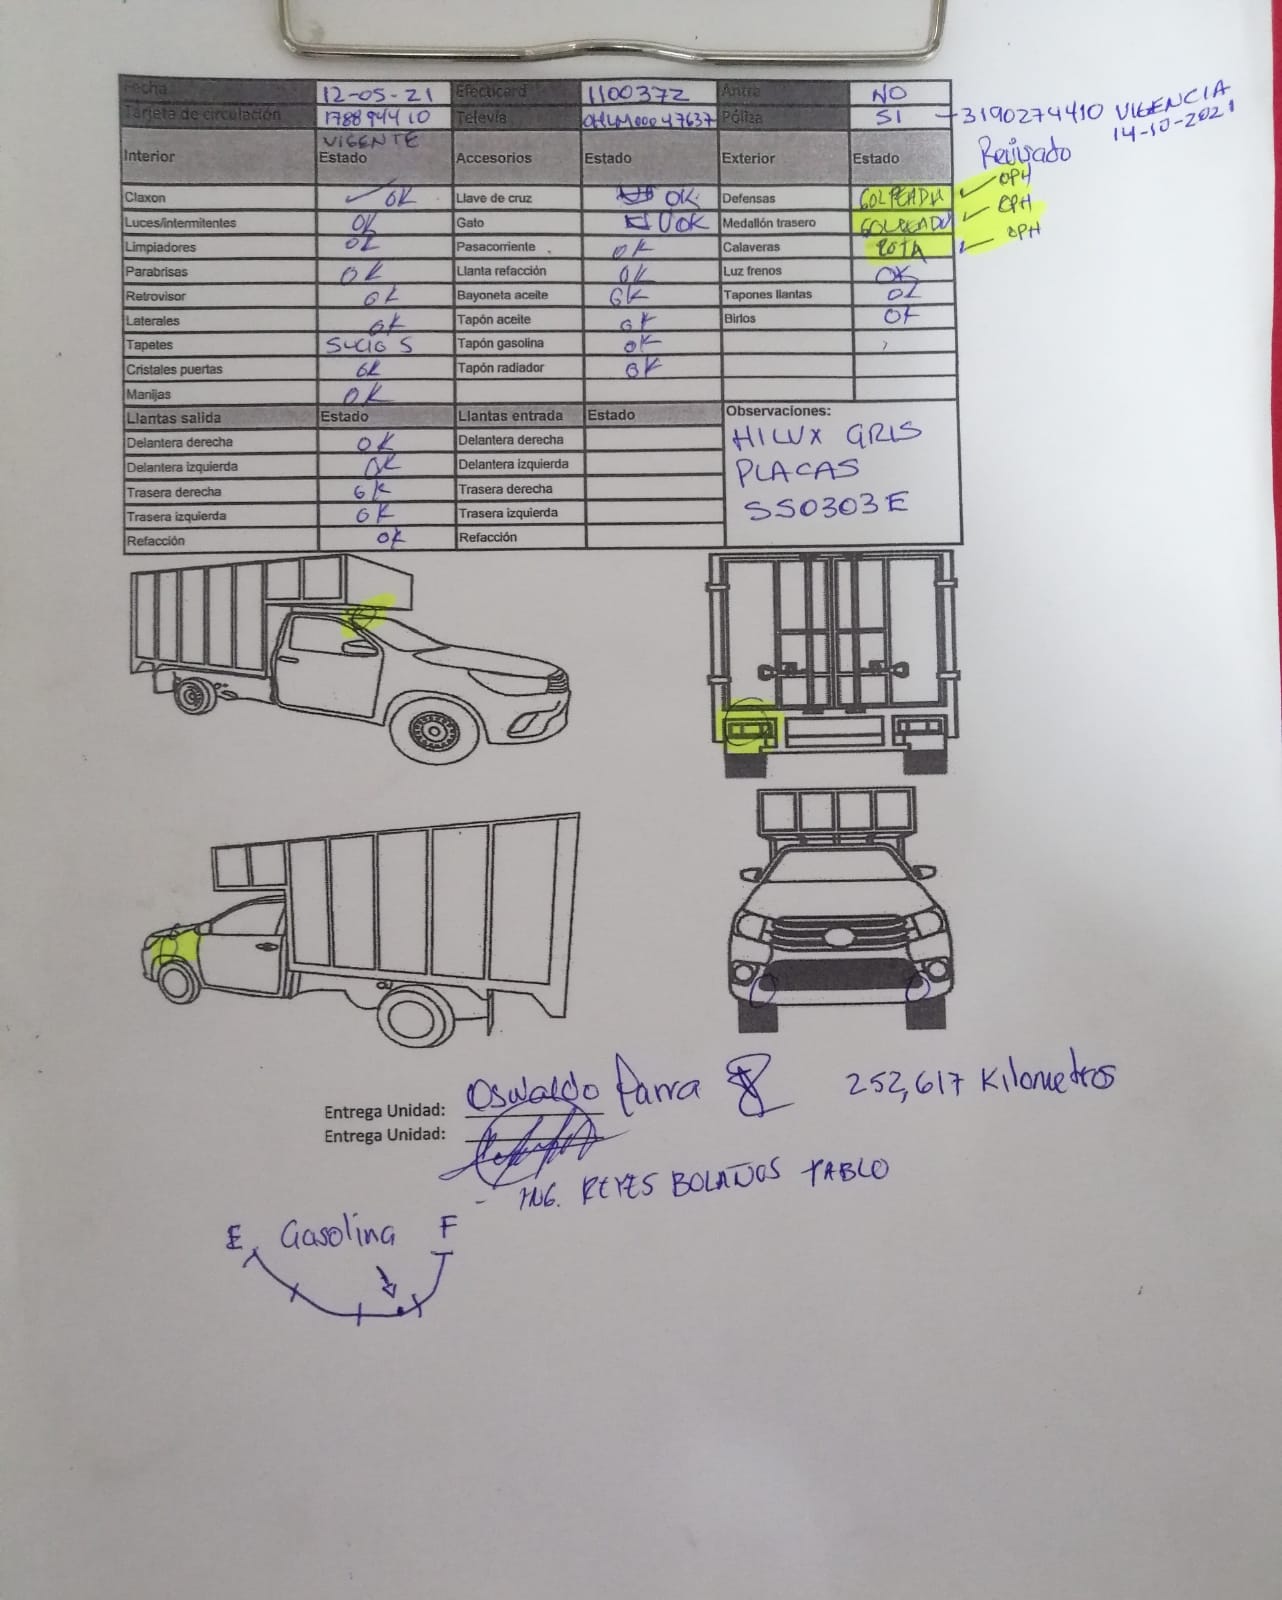 Fecha 12-05-21 Efecticard 1100372 Antra NO
Tarjeta de circulación 178894410 Televía Póliza SI - 3190274410 VIGENCIA
14-10-2021
VIGENTE
Interior Estado Accesorios Estado Exterior Estado Revisado
Claxon OK Llave de cruz OK. Defensas GOLPEADA OPH
Luces/intermitentes OK Gato OK Medallón trasero GOLPEADO OPH
Limpiadores OK Pasacorriente OK Calaveras ROTA OPH
Parabrisas OK Llanta refacción OK Luz frenos OK
Retrovisor OK Bayoneta aceite OK Tapones llantas OK
Laterales OK Tapón aceite OK Birlos OK
Tapetes SUCIOS Tapón gasolina OK
Cristales puertas OK Tapón radiador OK
Manijas OK
Llantas salida Estado Llantas entrada Estado Observaciones:
Delantera derecha OK Delantera derecha HILUX GRIS
Delantera izquierda OK Delantera izquierda PLACAS
Trasera derecha OK Trasera derecha SS0303E
Trasera izquierda OK Trasera izquierda
Refacción OK Refacción
Entrega Unidad: Oswaldo Parra 252,617 Kilometros
Entrega Unidad:
- ING. REYES BOLAÑOS PABLO
E Gasolina F